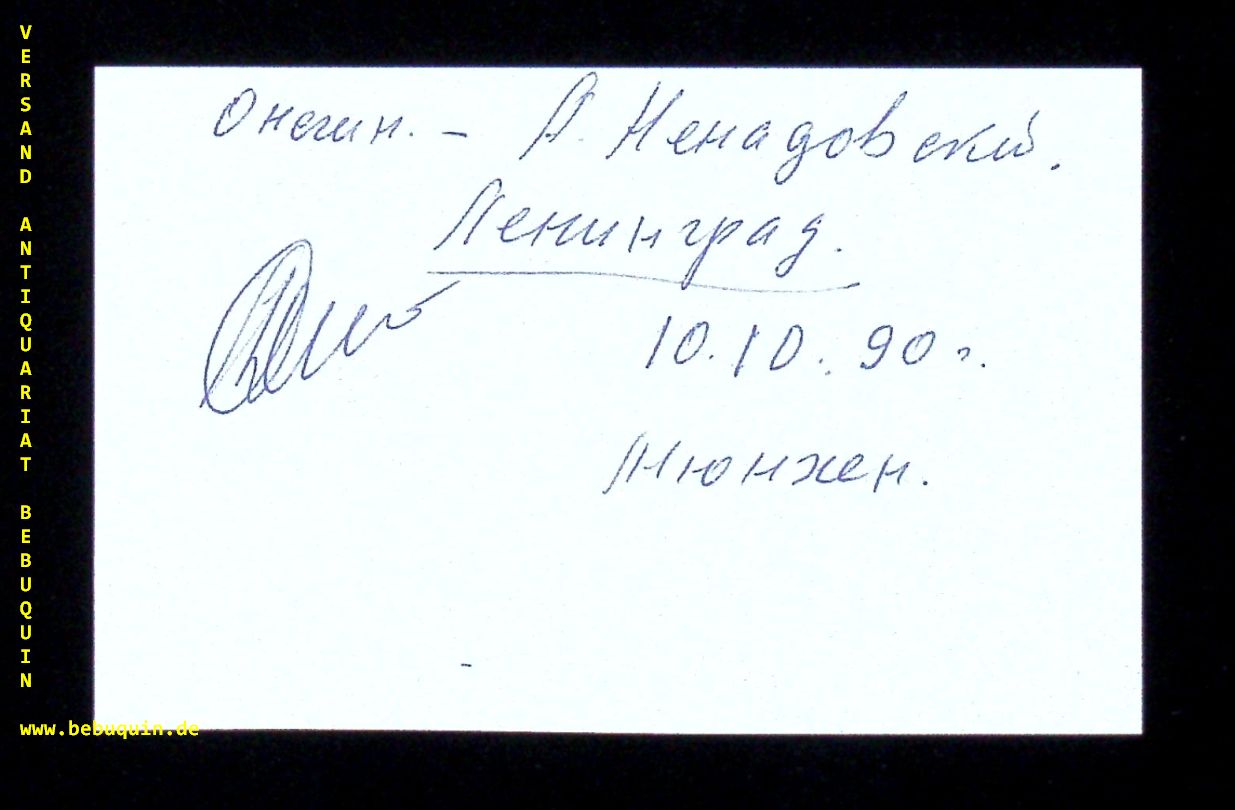 Онегин. – А. Ненадовский.
Ленинград.
10.10.90 г.
Мюнхен.
VERSAND ANTIQUARIAT BEBUQUIN
www.bebuquin.de